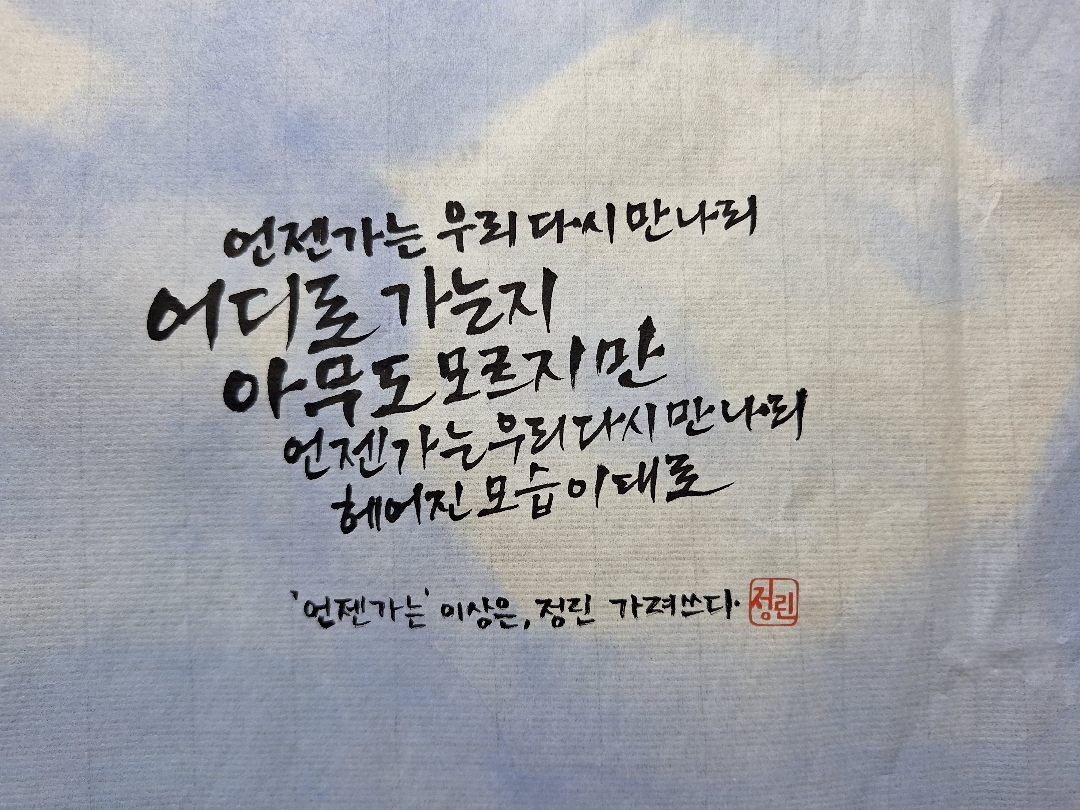 언젠가는 우리 다시 만나리
어디로 가는지
아무도 모르지만
언젠가는 우리 다시 만나리
헤어진 모습 이대로
'언젠가는' 이상은, 정린 가려쓰다.
정린